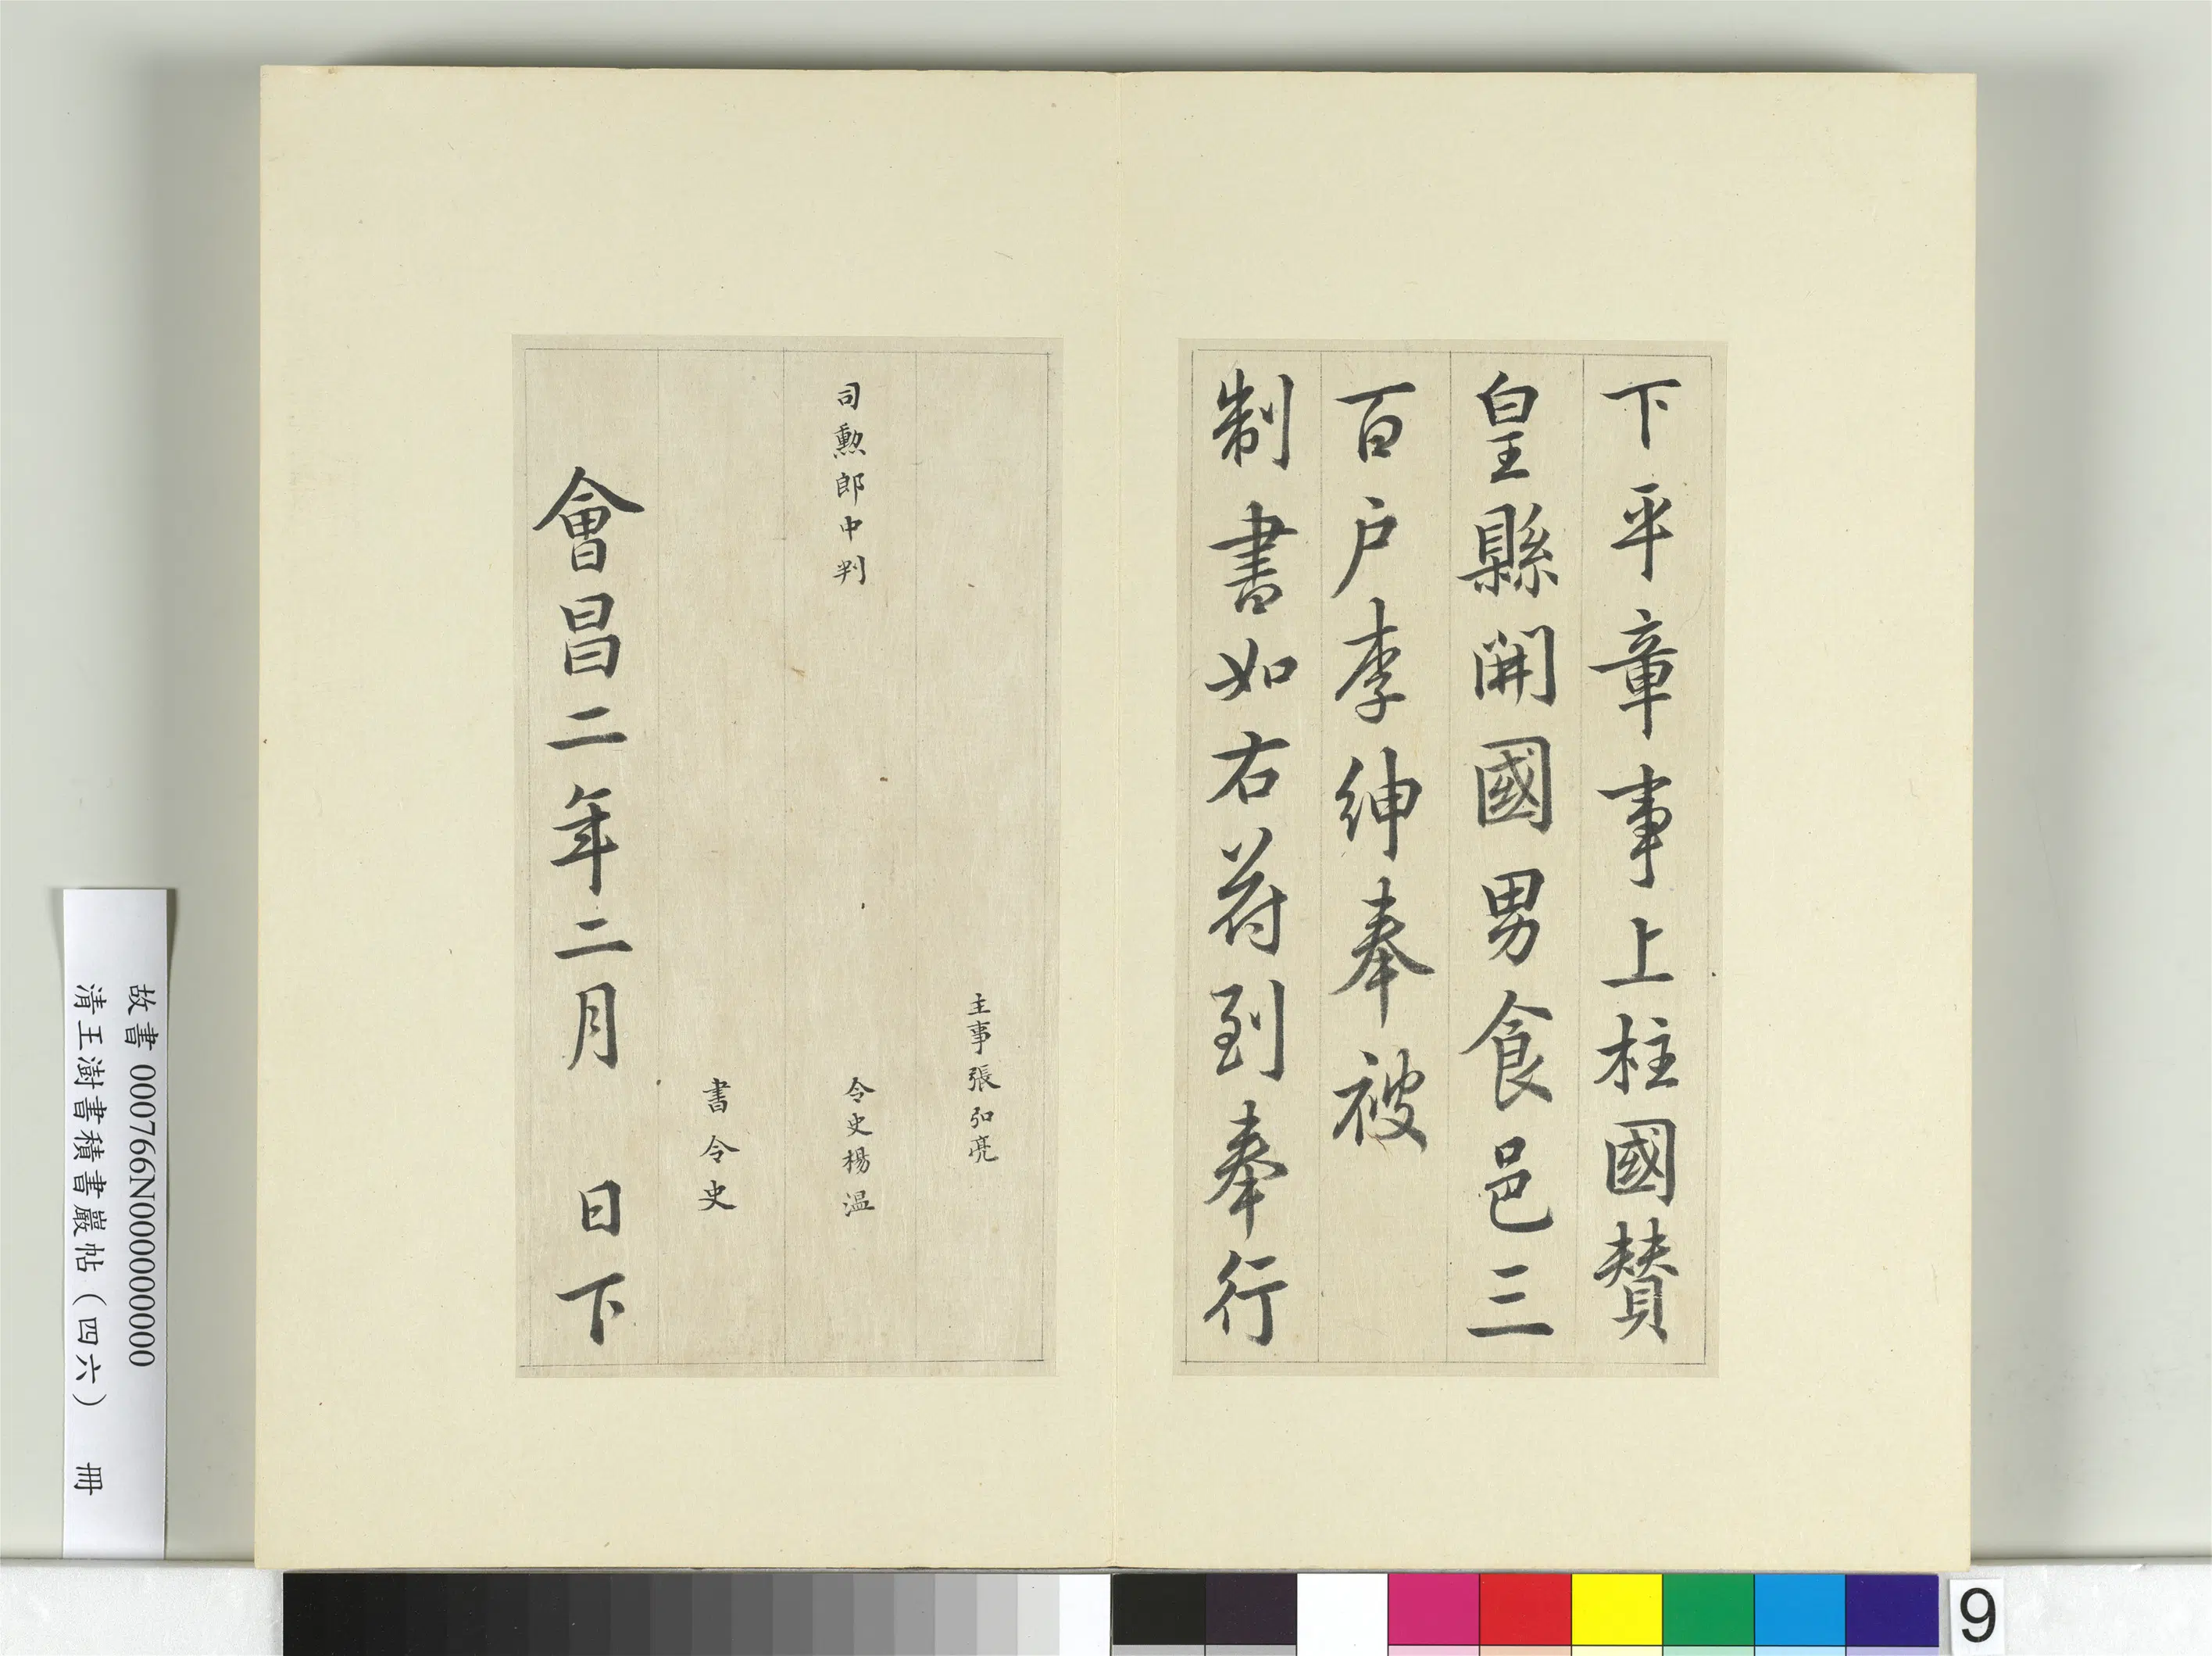 下平章事上柱國賛
皇縣開國男食邑三
百戶李紳奉被
制書如右苻到奉行
主事張弘亮
司勲郎中判
令史楊溫
書令史
會昌二年二月 日下
故書 000766N000000000
清王澍書積書巖帖（四六） 冊
9